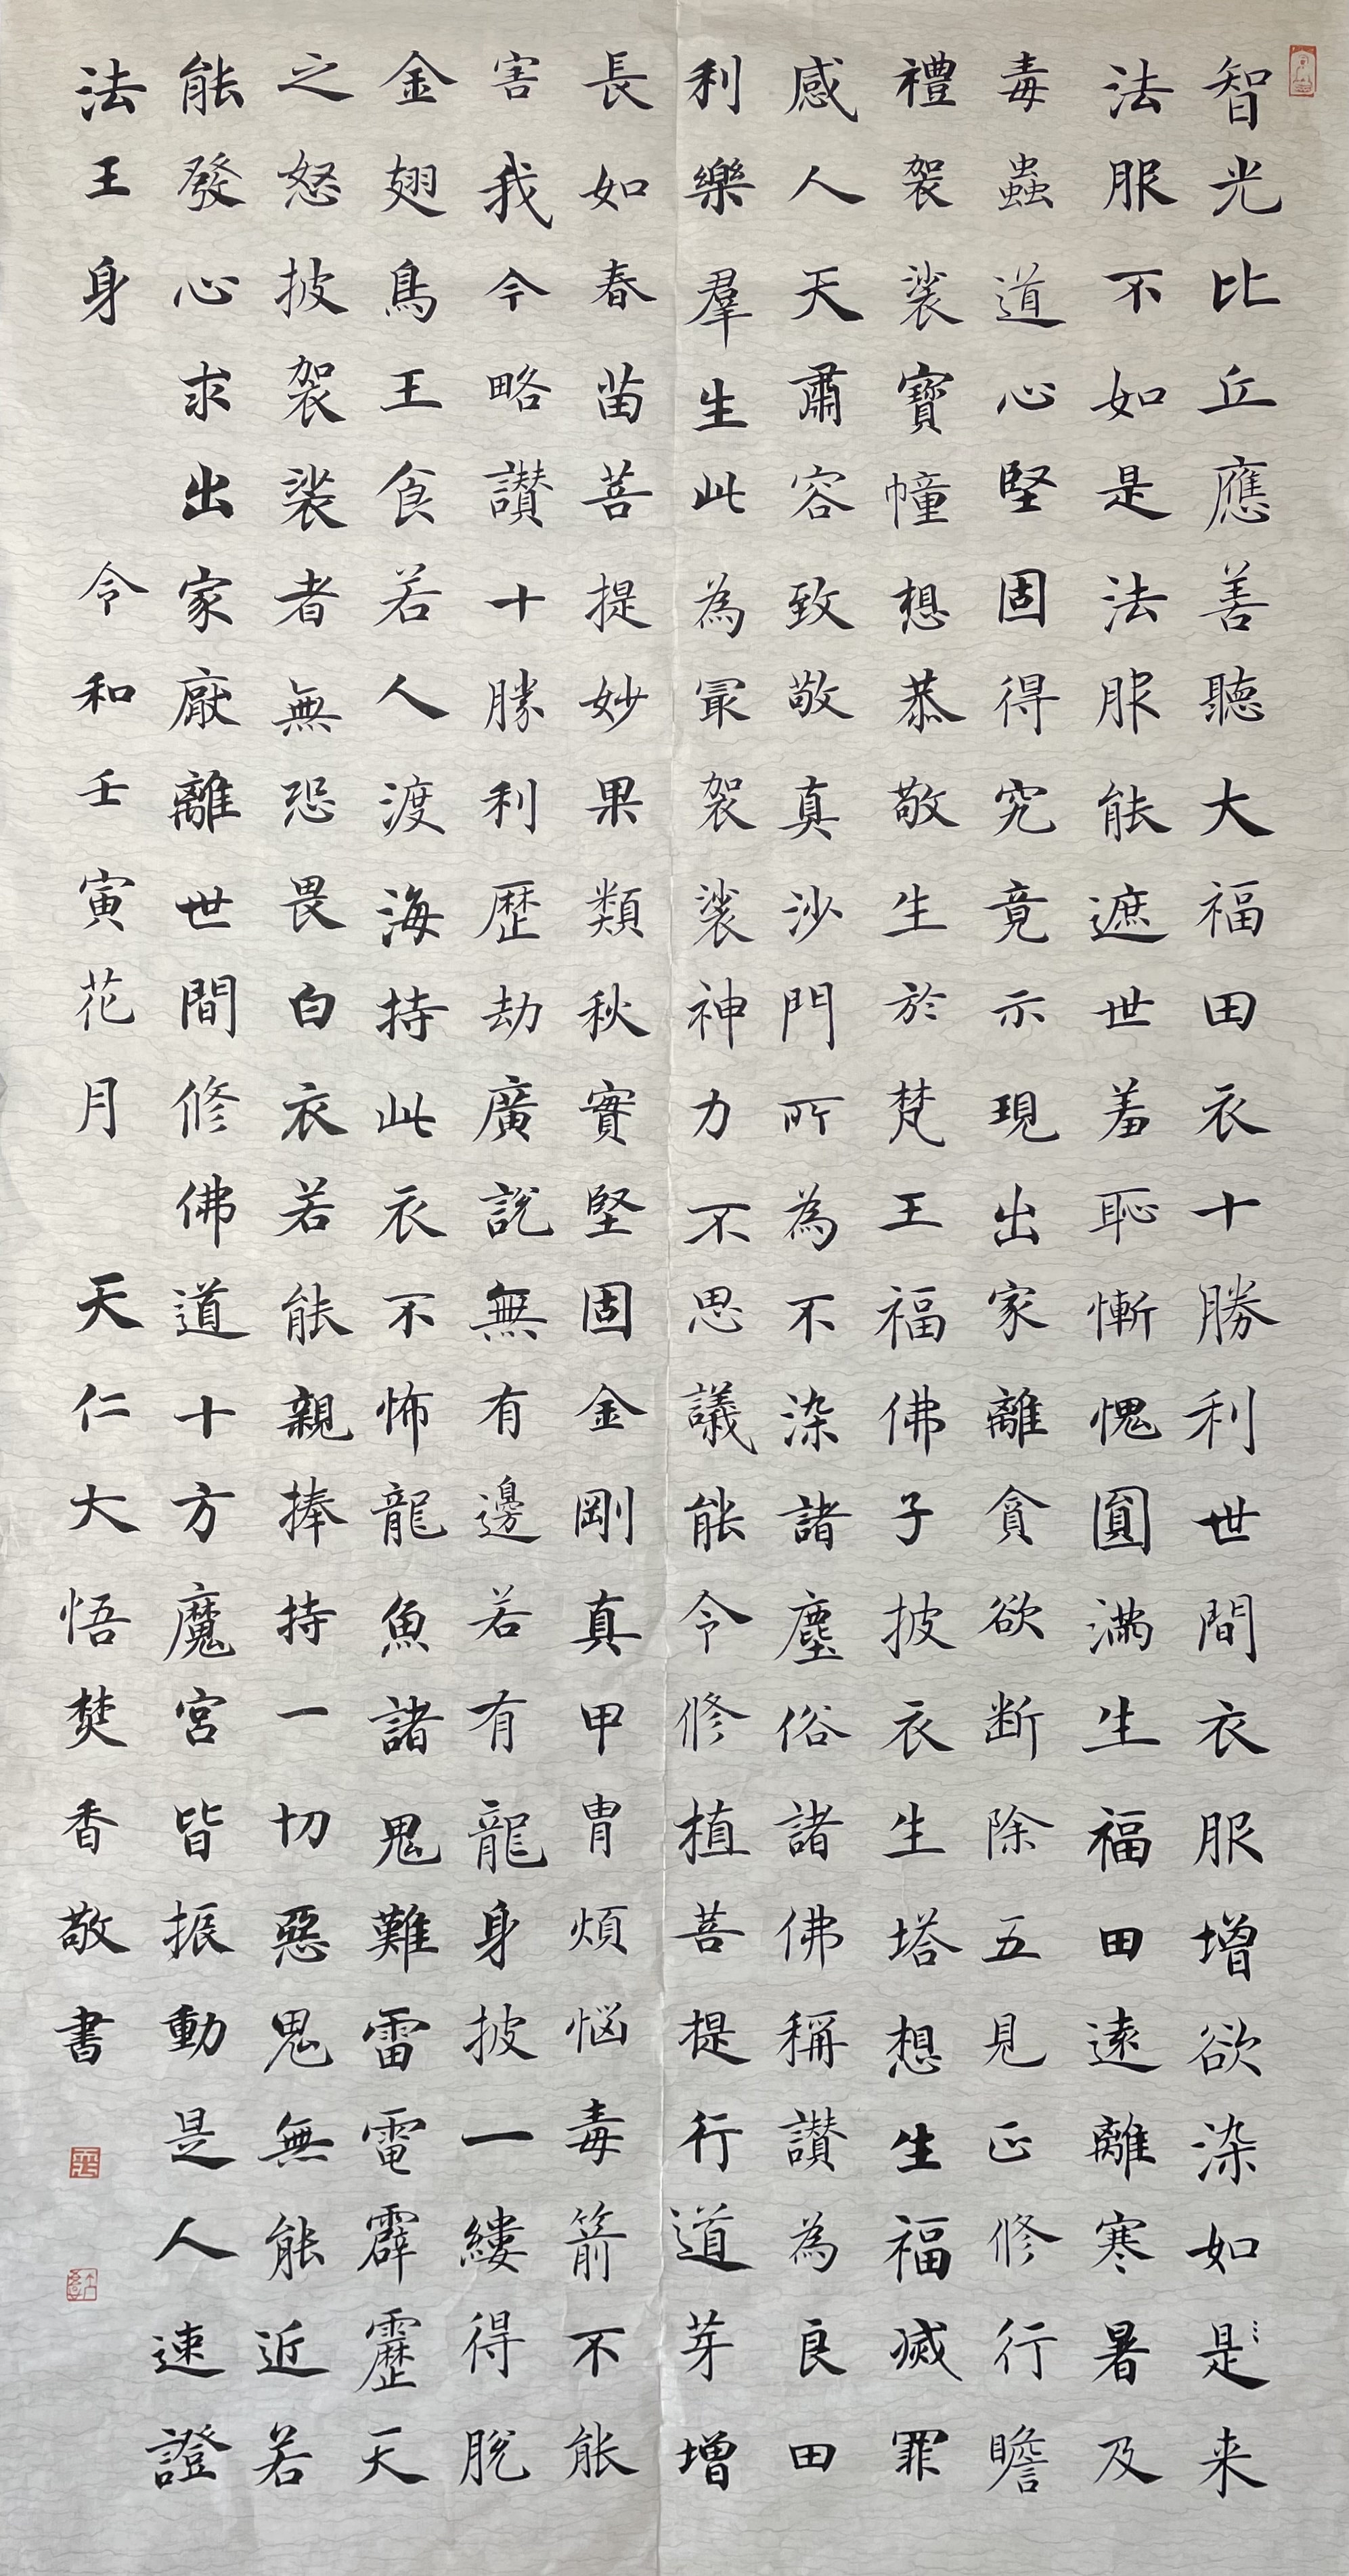 智光比丘應善聽大福田衣十勝利世間衣服增欲染如是来
法服不如是法服能遮世羞恥慚愧圓滿生福田遠離寒暑及
毒蟲道心堅固得究竟示現出家離貪欲断除五見正修行瞻
禮袈裟寶幢想恭敬生於梵王福佛子披衣生塔想生福滅罪
感人天肅容致敬真沙門所為不染諸塵俗諸佛稱讃為良田
利樂羣生此為冣袈裟神力不思議能令修植菩提行道芽增
長如春苗菩提妙果類秋實堅固金剛真甲冑煩悩毒箭不能
害我今略讃十勝利歴劫廣說無有邊若有龍身披一縷得脫
金翅鳥王食若人渡海持此衣不怖龍魚諸鬼難雷電霹靂天
之怒披袈裟者無恐畏白衣若能親捧持一切惡鬼無能近若
能發心求出家厭離世間修佛道十方魔宮皆振動是人速證
法王身 令和壬寅花月 天仁大悟焚香敬書